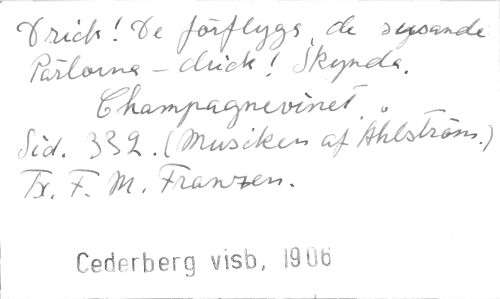 Drick! De förflyga, de sysande
Pärlorna - drick! Skynda.
Champagnevinet.
Sid. 332. (Musiken af Åhlström.)
Tx. F. M. Franzen.
Cederberg visb, 1906